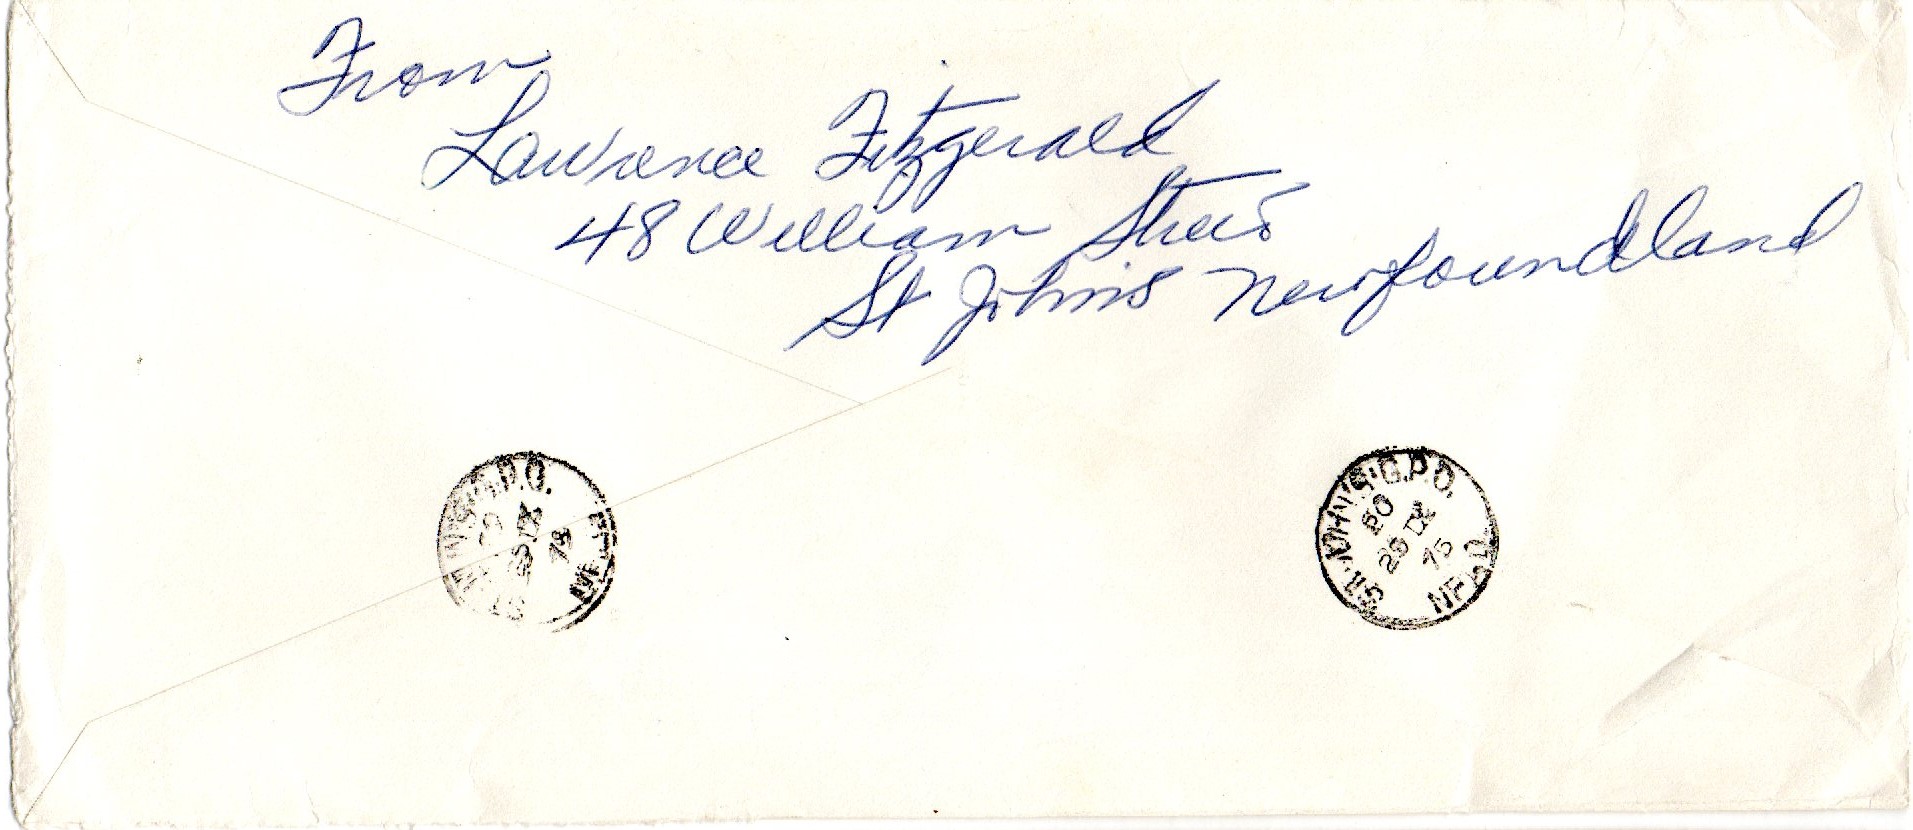 From
Lawrence Fitzgerald
48 William Street
St John's Newfoundland
G.P.O.
ST. JOHN'S G.P.O.
20
25 IX
75
NFLD